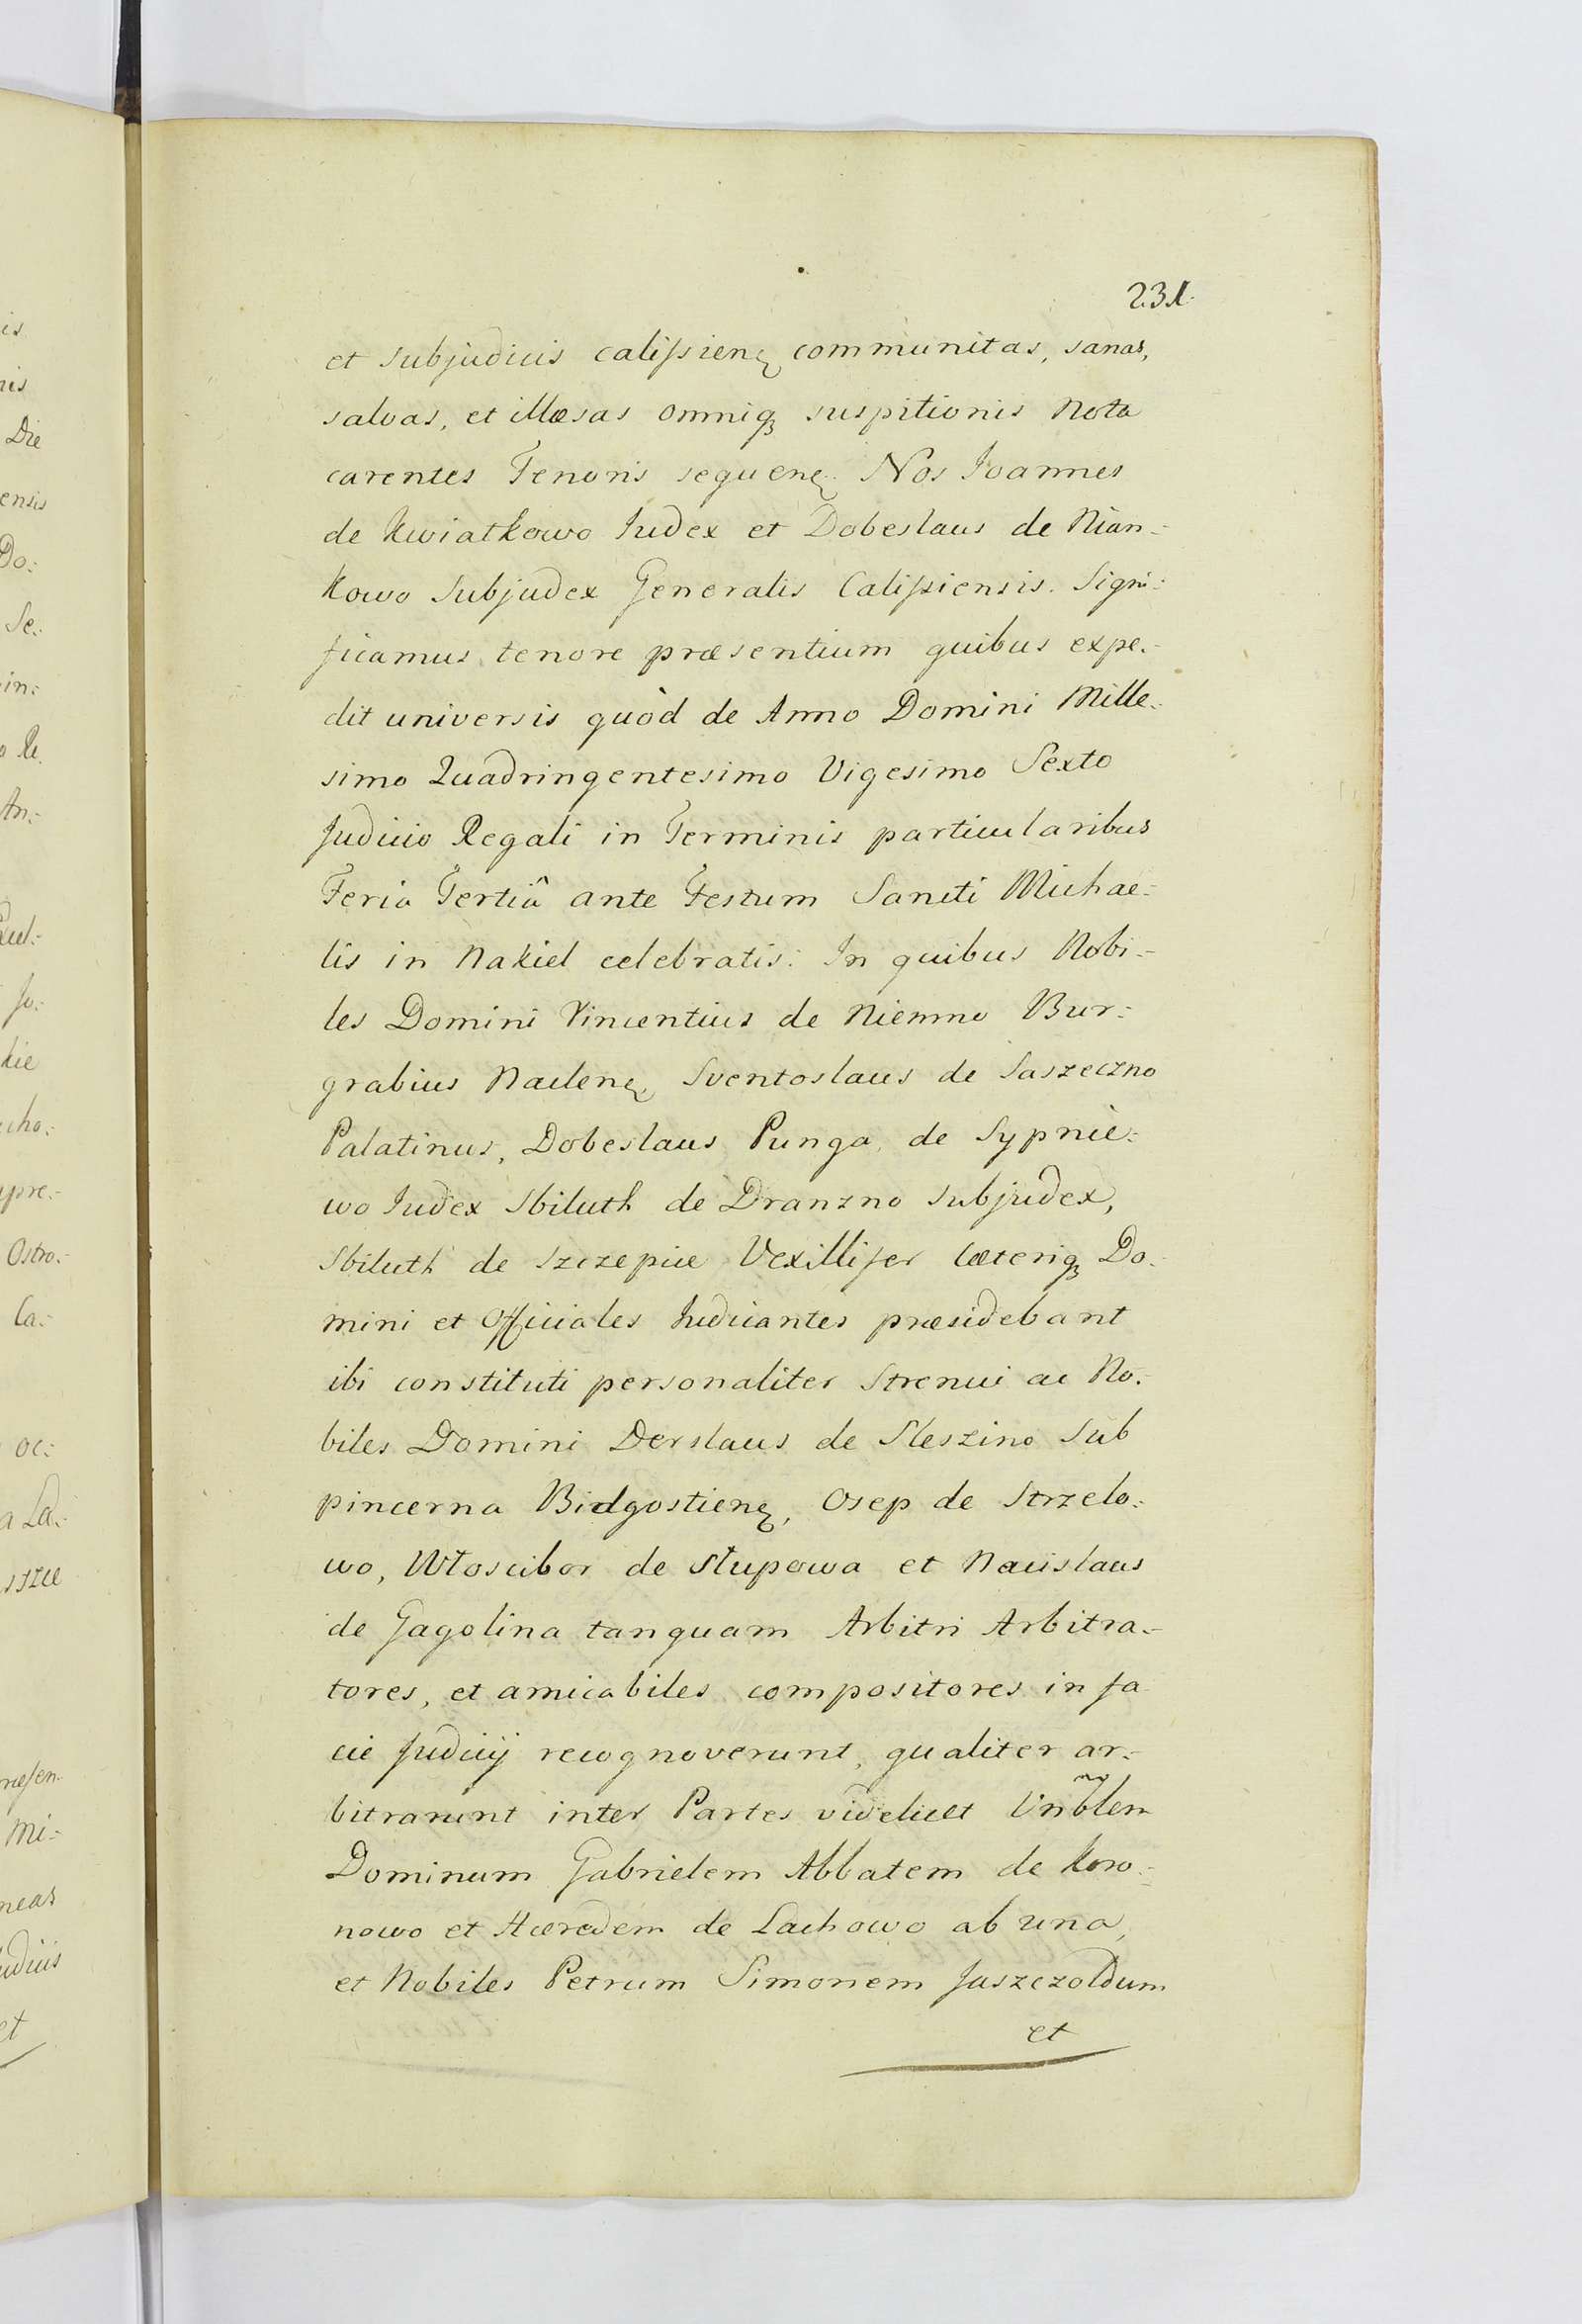 231.
et Subjudicis calissieng communitas, sanas,
salvas, et illæsas omniq suspitionis Nota
carentes Tenoris sequeng. Nos Joannes
de Kwiatkowo Judex et Dobeslaus de Nian-
kowo Subjudex Generalis Calissiensis. Signi-
ficamus tenore præsentium quibus expe-
dit universis quòd de Anno Domini Mille-
simo Quadringentesimo Vigesimo Sexto
Judicio Regali in Terminis particularibus
Feria Tertiâ ante Festum Sancti Michae-
lis in Nakiel celebratis: In quibus Nobi-
les Domini Vincentius de Niemno Bur-
grabius Nacleng, Sventoslaus de Saszeczno
Palatinus, Dobeslaus Punga de Sypnie-
wo Judex Sbiluth de Dranzno Subjudex,
Sbiluth de Szczepice Vexillifer Cæteriq Do-
mini et Officiales Judicantes præsidebant
ibi constituti personaliter Strenui ac No-
biles Domini Derslaus de Sleszino Sub
pincerna Bidgostieng, Osep de Strzelo-
wo, Włoscibor de Słupowa et Nacislaus
de Gagolina tanquam Arbitri Arbitra-
tores, et amicabiles compositores in fa
cie Judicij recognoverunt, qualiter ar-
bitrarunt inter Partes videlicet Vnblem
Dominum Gabrielem Abbatem de Koro-
nowo et Hæredem de Lachowo ab una,
et Nobiles Petrum Simonem Jaszczoldum
et
is
nis
Die
ensis
Do:
Se:
in:
o Re
An:
Jo:
kie
cho:
pre:
Ostro:
Ca:
oc:
a La:
sszce
Mi:
neas
udicis
et